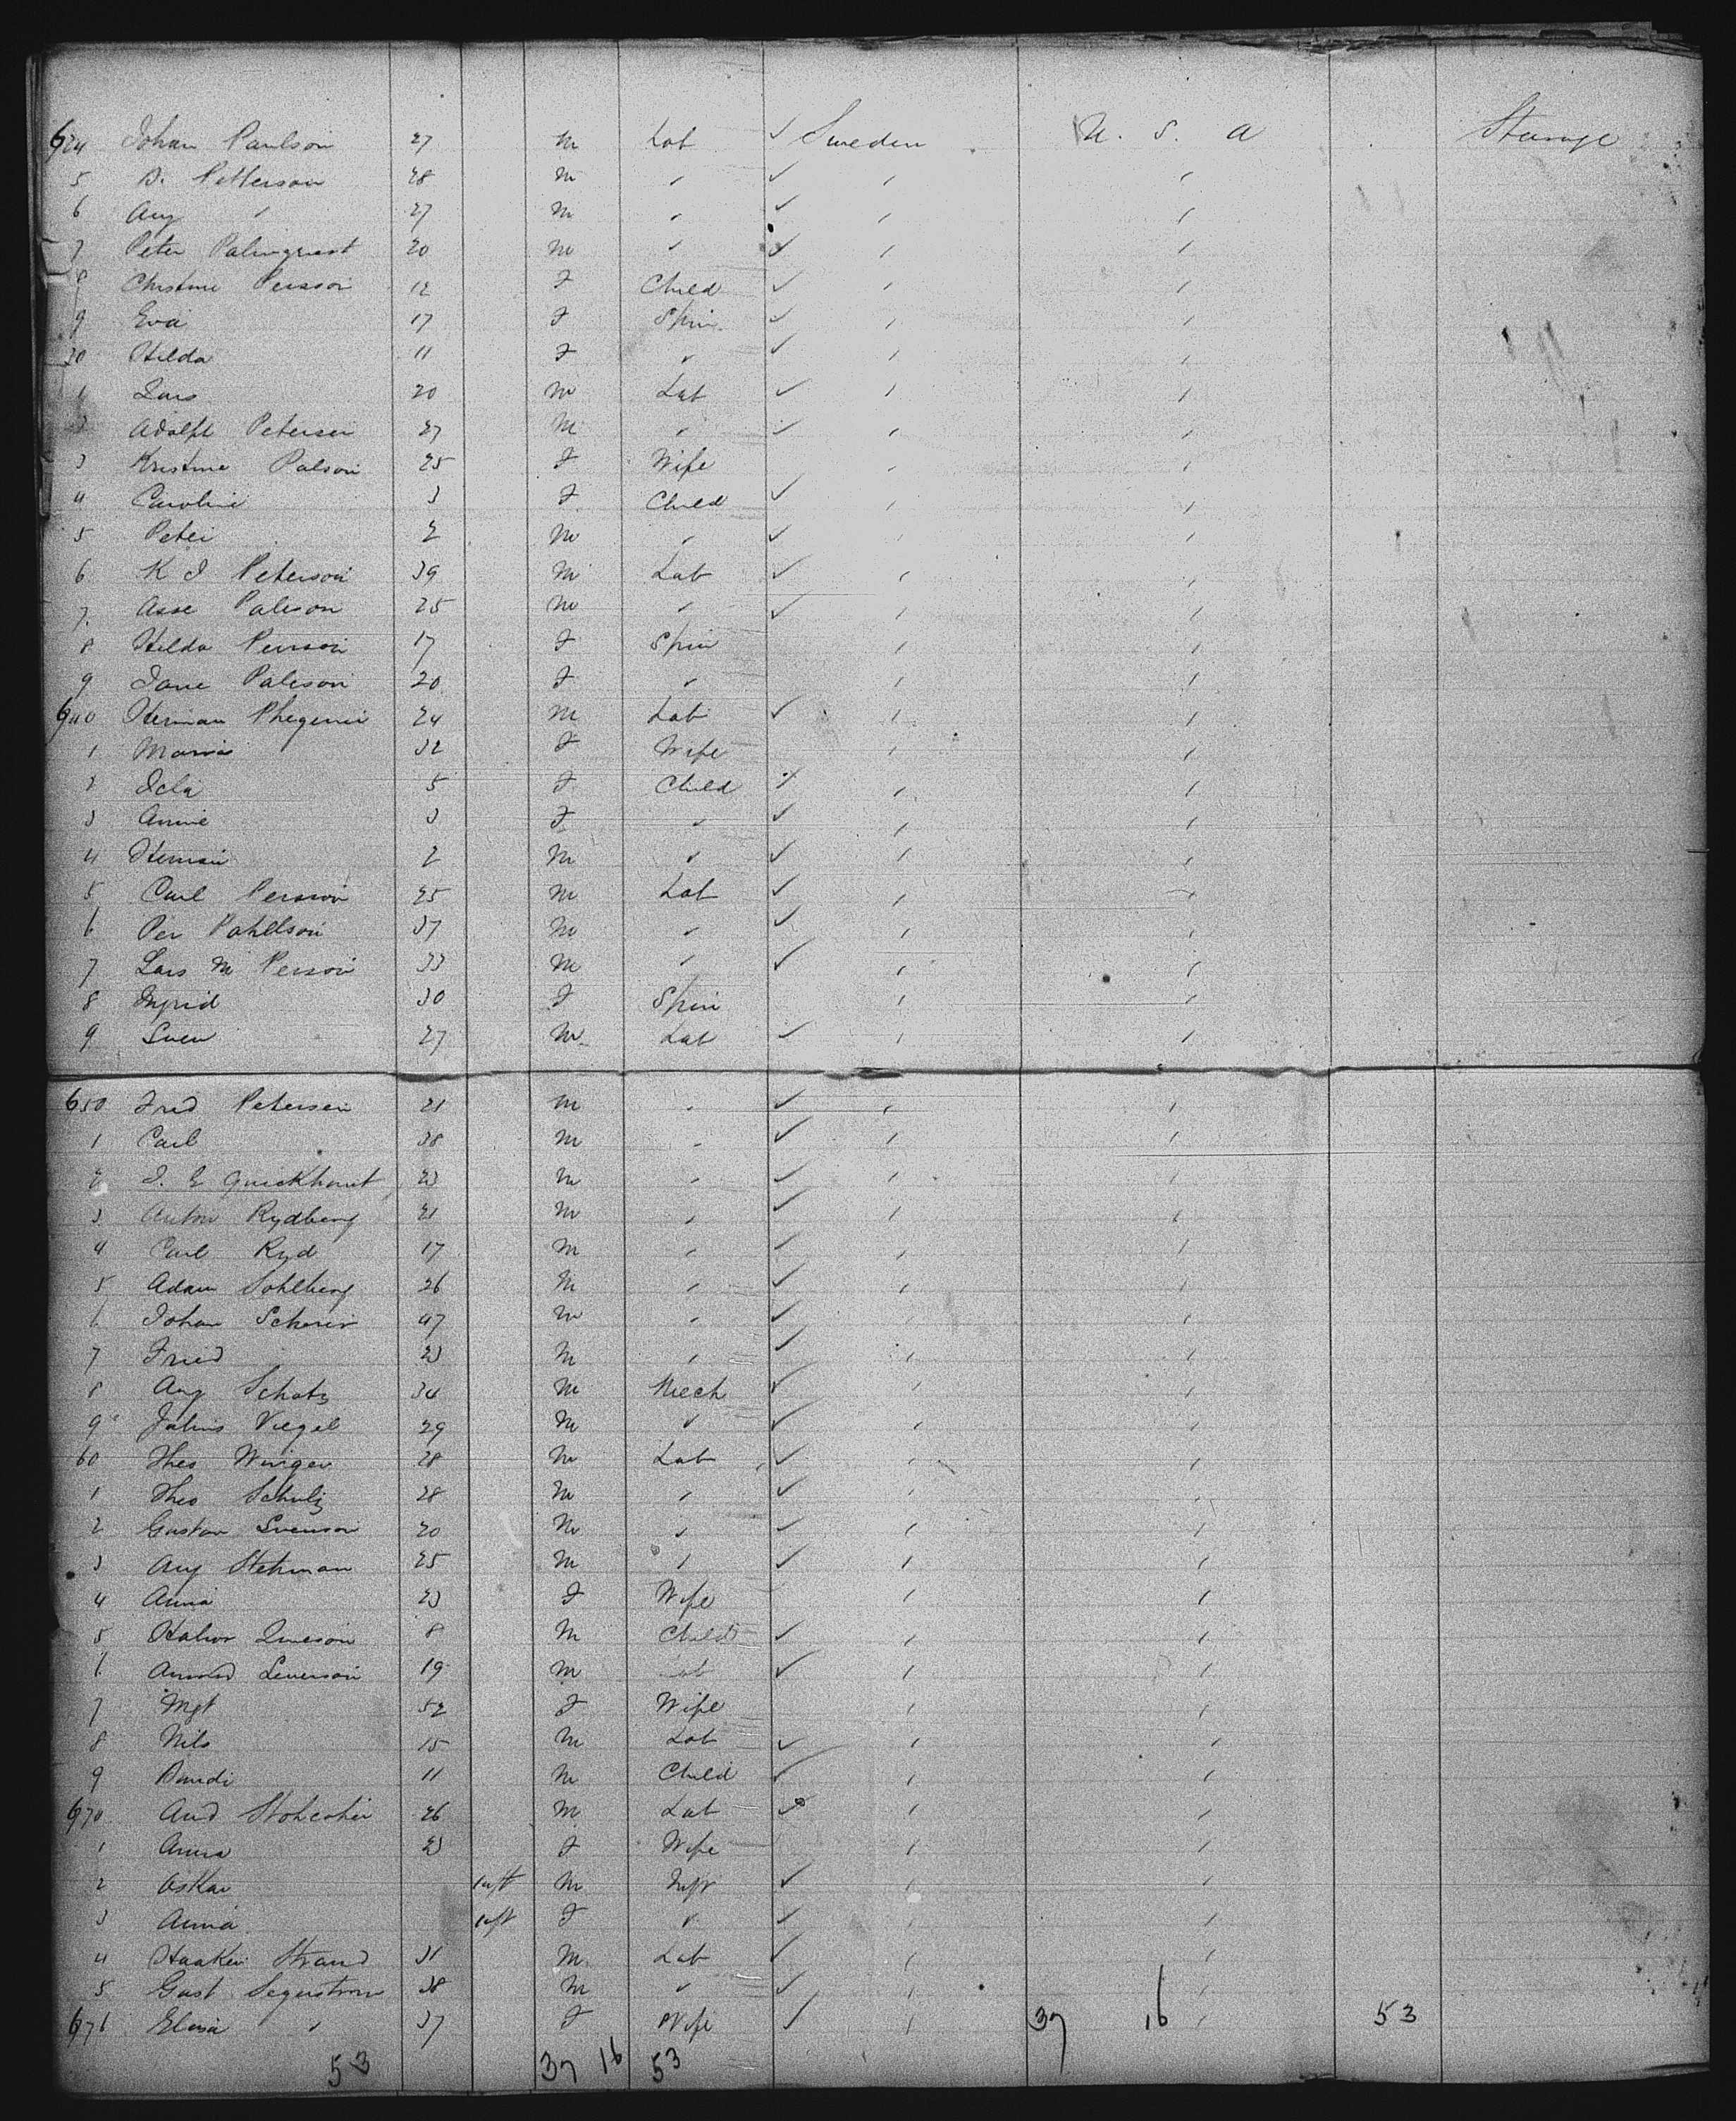 624 Johan Paulson 27 m Lab ✓ Sweden U. S. A Steerage
5 B. Petterson 28 m " ✓ " "
6 Aug " 27 m " ✓ " "
7 Peter Palmqvist 20 m " ✓ " "
8 Christine Persson 12 F Child ✓ " "
9 Eva 17 F Spin ✓ " "
30 Hilda 11 F " ✓ " "
1 Lars 20 m Lab ✓ " "
2 Adolph Petersen 27 m " ✓ " "
3 Kristine Palson 25 F Wife " "
4 Caroline 3 F Child ✓ " "
5 Peter 2 m " ✓ " "
6 K J Peterson 39 m Lab ✓ " "
7 Asse Paleson 25 m " ✓ " "
8 Hilda Persson 17 F Spin " "
9 Jane Paleson 20 F " " "
640 Herman 24 m Lab ✓ " "
1 Maria 32 F Wife " "
2 5 F Child ✓ " "
3 Annie 3 F " ✓ " "
4 Herman 2 m " ✓ " "
5 Carl Persson 25 m Lab ✓ " "
6 Per Pahlson 37 m " ✓ " "
7 Lars M Persson 33 m " ✓ " "
8 Ingrid 30 F Spin " "
9 Sven 27 m Lab ✓ " "
650 Fred Petersen 21 m " ✓ " "
1 Carl 38 m " ✓ " "
2 J. E Quickhount 23 m " ✓ " "
3 Anton Rydberg 21 m " ✓ " "
4 Carl Ryd 17 m " ✓ " "
5 Adam Sohlberg 26 m " ✓ " "
6 Johan 47 m " ✓ "
7 Fried 23 m " ✓ " "
8 Aug Schatz 34 m Mech ✓ " "
9 Julius Viegel 29 m " ✓ " "
60 Theo Winger 28 m Lab ✓ " "
1 Theo Schulz 28 m " ✓ " "
2 Gustav Svenson 20 m " ✓ " "
3 Aug Stehman 25 m " ✓ " "
4 Anna 23 F Wife " "
5 Halvor 8 m Child ✓ " "
6 Leverson 19 m Lab ✓ " "
7 Mgt 52 F Wife " "
8 Nils 15 m Lab ✓ " "
9 11 m Child ✓ " "
670 And 26 m Lab ✓ " "
1 Anna 23 F Wife " "
2 Askar inft m Inft ✓ " "
3 Anna inft F " ✓ " "
4 Haaken Strand 31 m Lab ✓ " "
5 Gust Segerstrom 38 m " ✓ " "
676 " 37 F Wife ✓ " 37 16 " 53
53 37 16 53